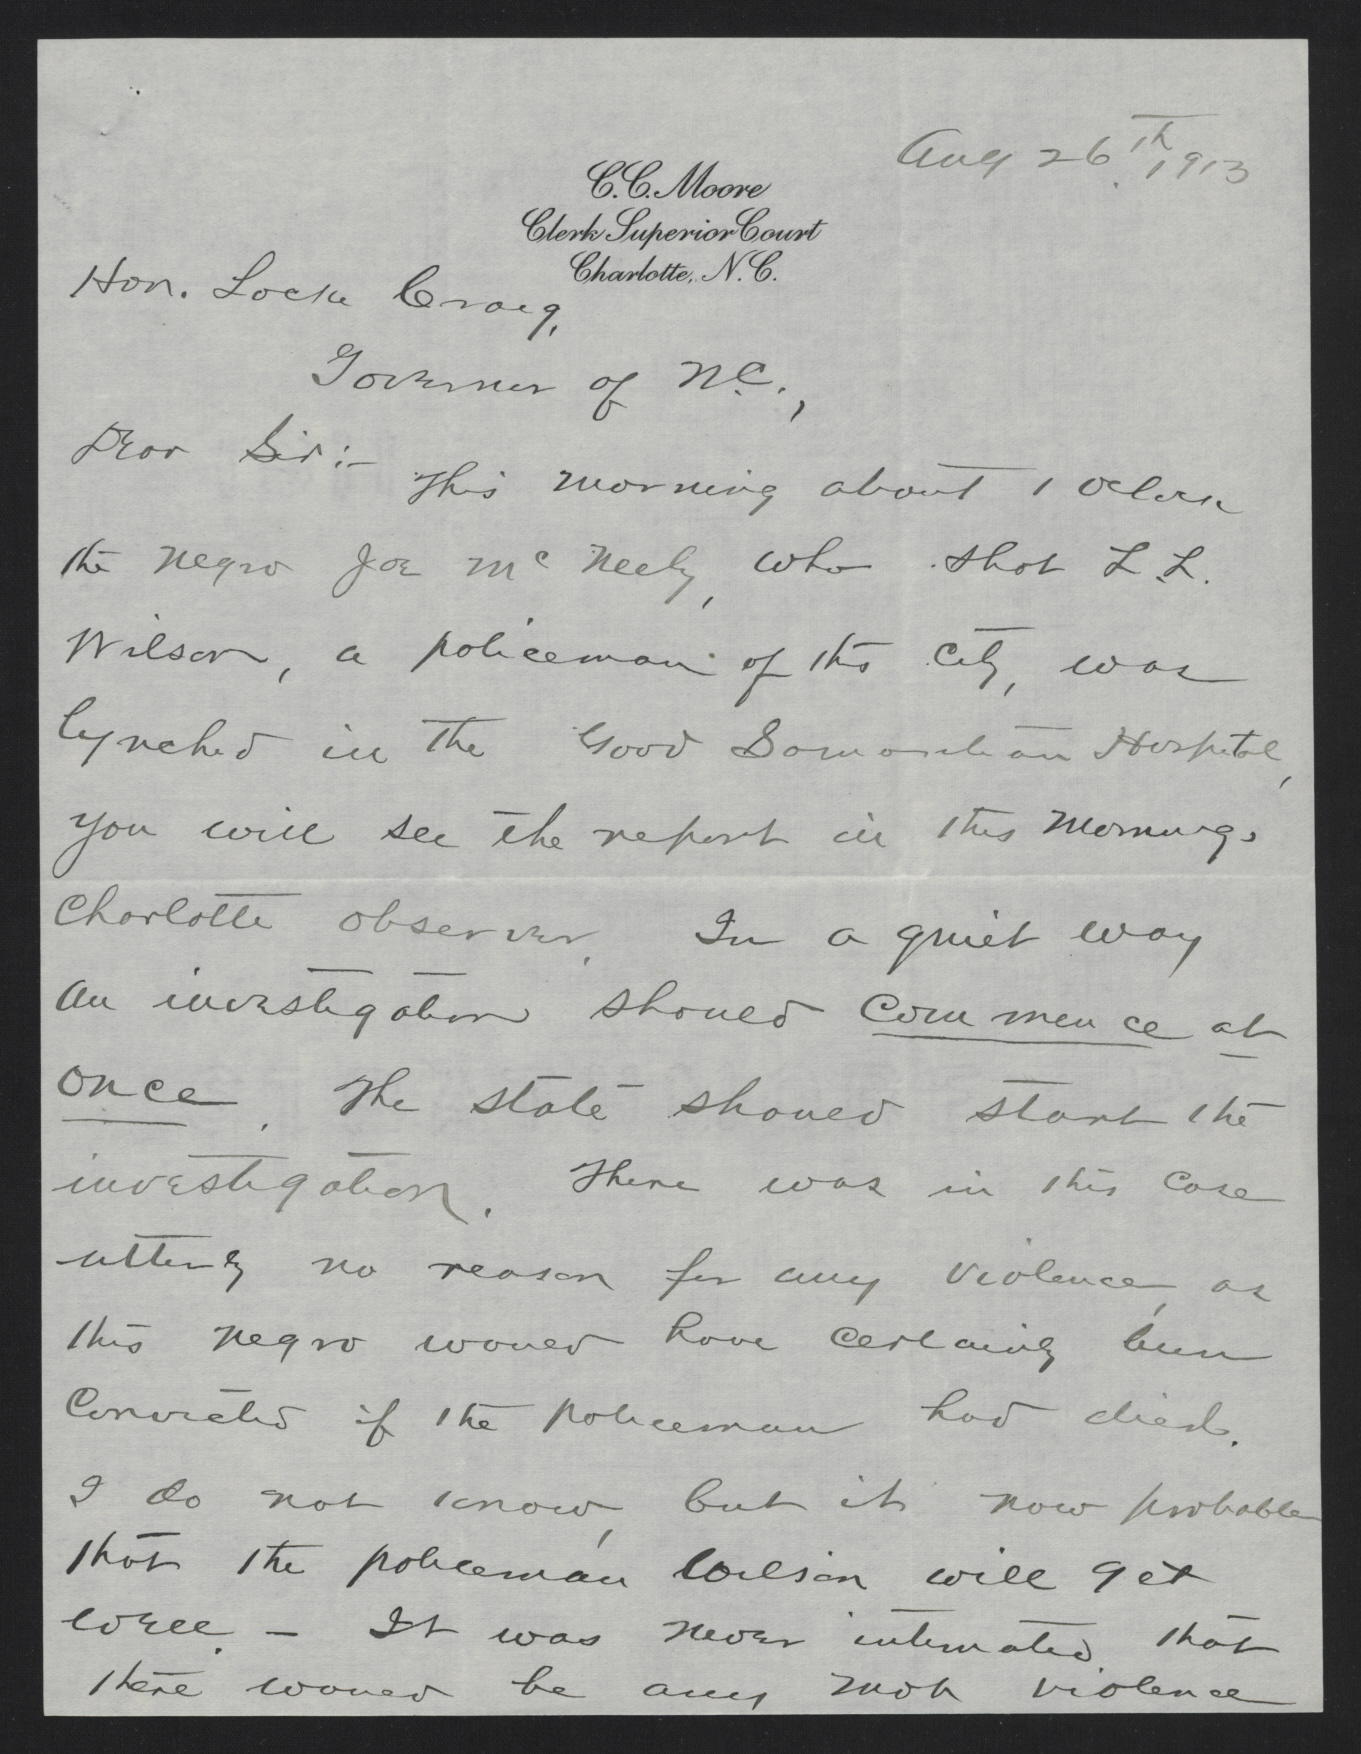 Aug 26th, 1913
C.C. Moore
Clerk Superior Court
Charlotte, N.C.
Hon. Locke Craig,
Governor of N.C.,
Dear Sir:-
This morning about 1 oclock
the negro Joe McNeely, who shot L.L.
Wilson, a policeman of this city, was
lynched in the Good Samaritan Hospital,
you will see the report in this mornings
Charlotte observer. In a quiet way
an investigation should commence at
once. The state should start the
investigation. There was in this case
utterly no reason for any violence, as
this negro would have certainly been
convicted if the policeman had died.
I do not know, but it now probable
that the policeman Wilson will get
well. - It was never intimated that
there would be any mob violence